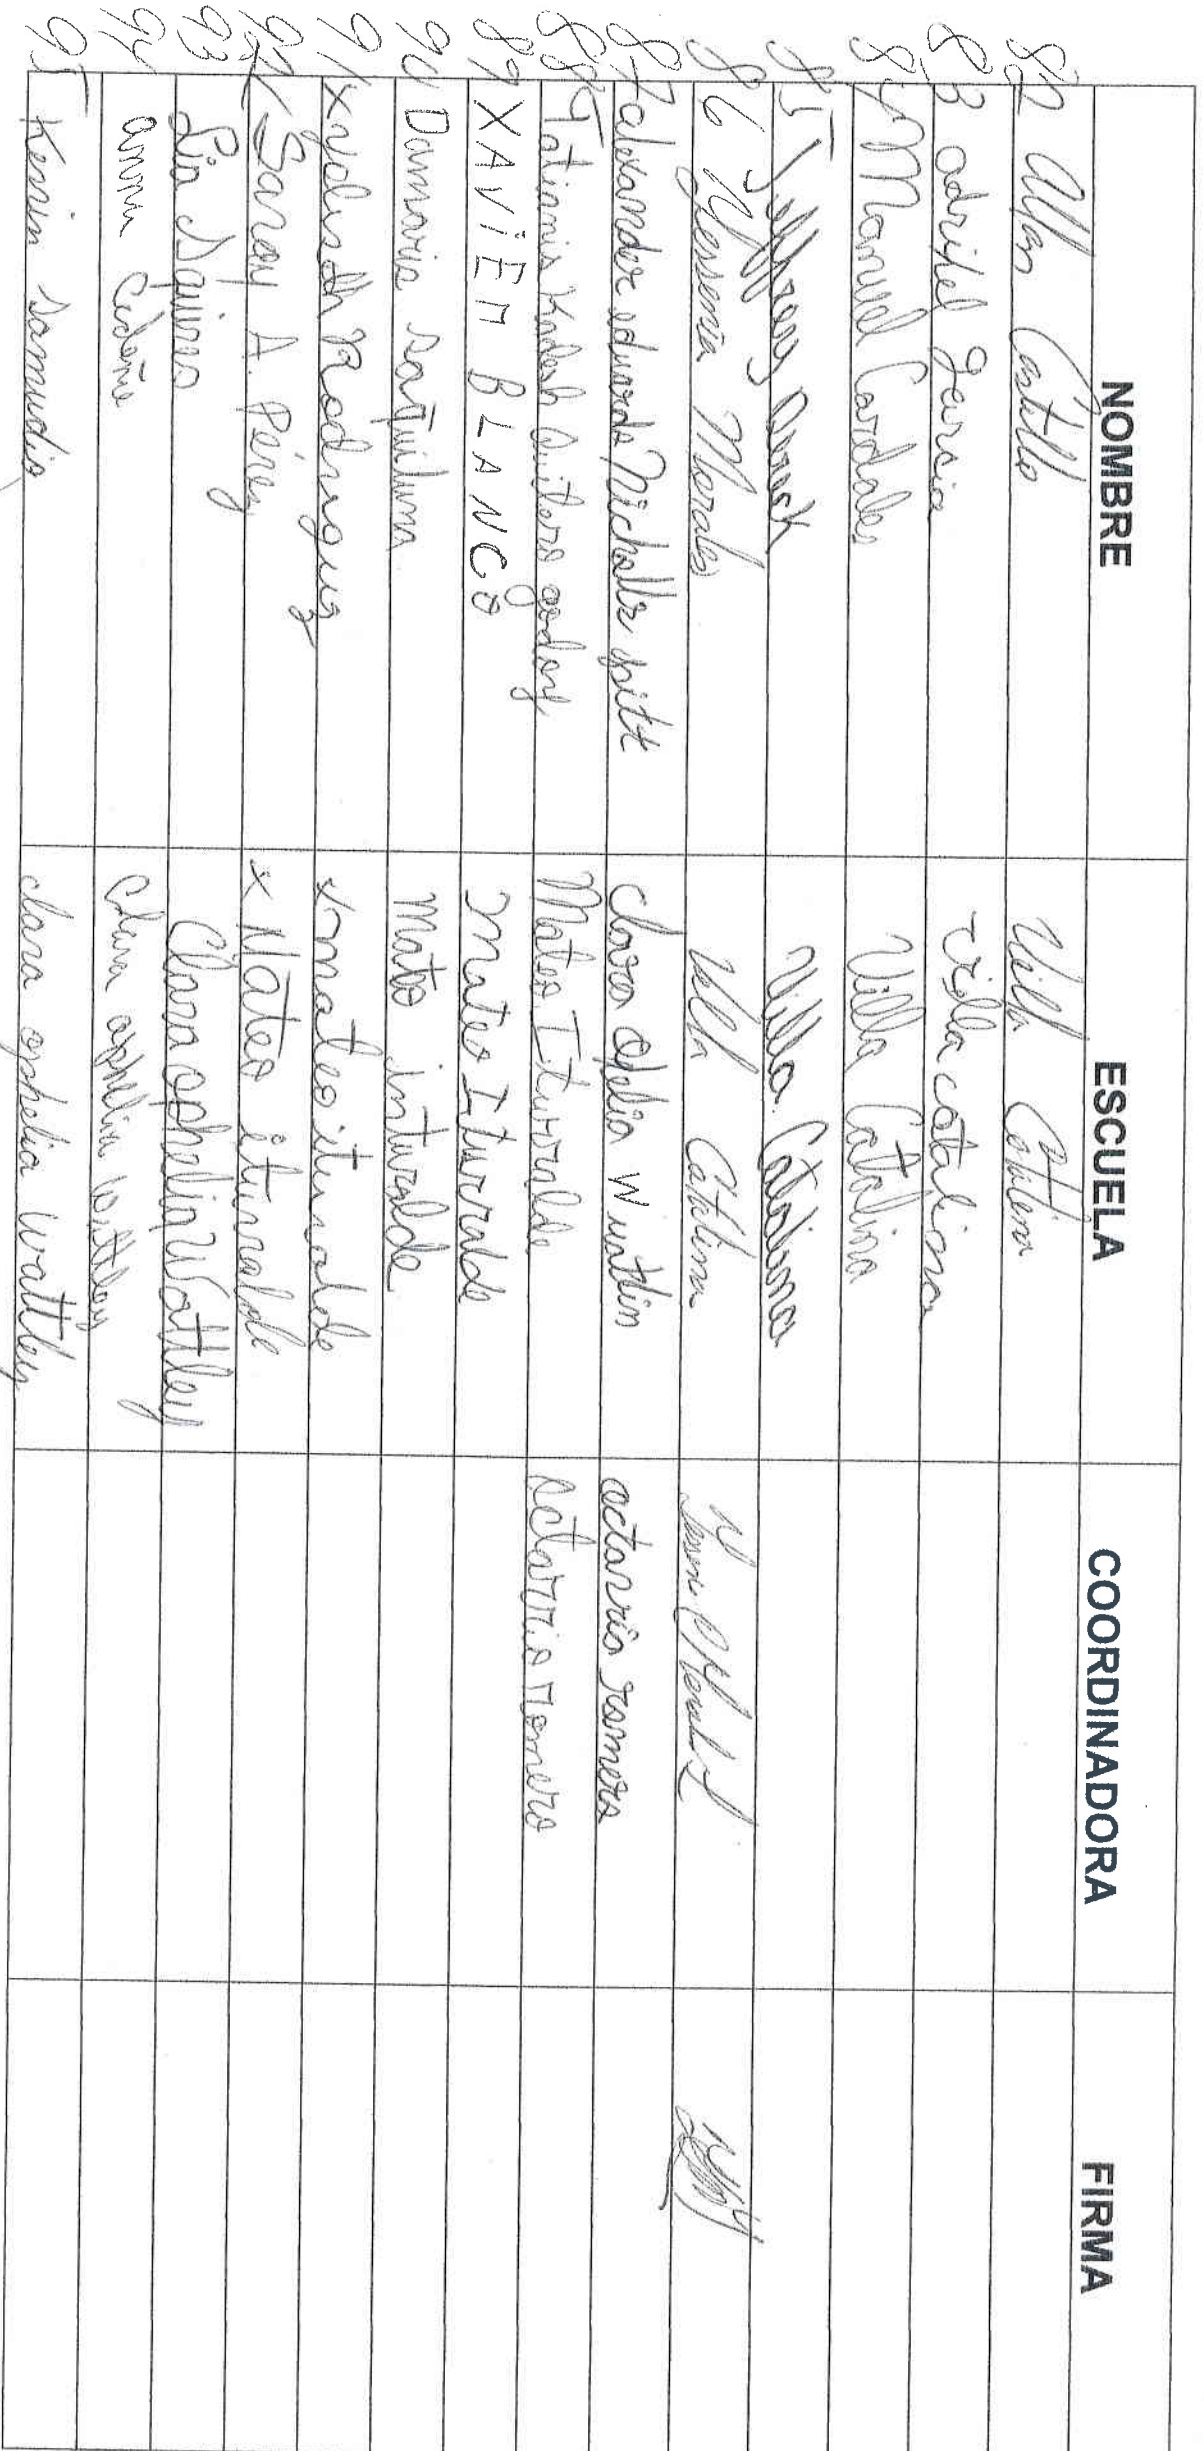 NOMBRE ESCUELA COORDINADORA FIRMA
82 Allan Castillo Villa Catalina
83 adriel Garcia villa catalina
84 Manuel Cardales Villa Catalina
85 Jeffrey Villa Catalina
86 Yessenia Morales Villa Catalina
87 alexander eduardo Nicholls pitt clara Ofelia octavio romero
88 Kadesh godoy Mateo Iturralde octavio romero
89 XAViER BLANCO Mateo Iturralde
90 Damaris Mateo inturalde
91 x Rodriguez x mateo iturralde
92 x Saray A. Pérez x Mateo iturralde
93 Lia Squires Clara ophelia Wattley
94 Cedeño Clara
95 Kevin Samudio clara ophelia wattley